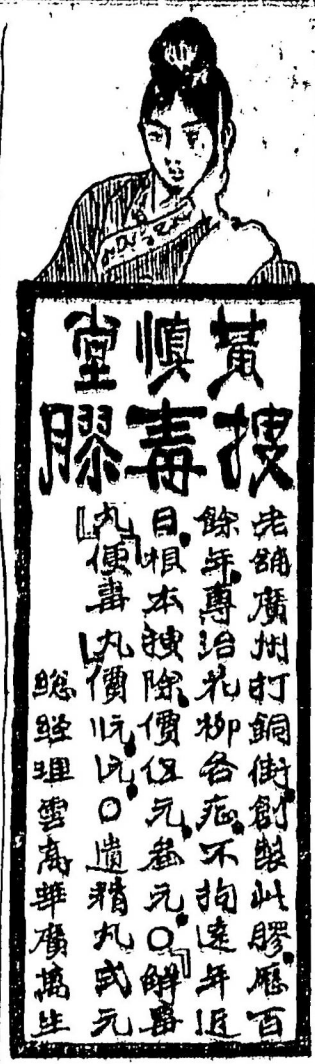 黃慎堂
搜毒膠
老舖廣州打銅街創製此膠歷百
餘年專治花柳各症不拘遠年近
日根本搜除價伍元叁元〇「解毒
丸」「便毒丸」價 元〇遺精丸弍元
總經理雲高華廣萬生